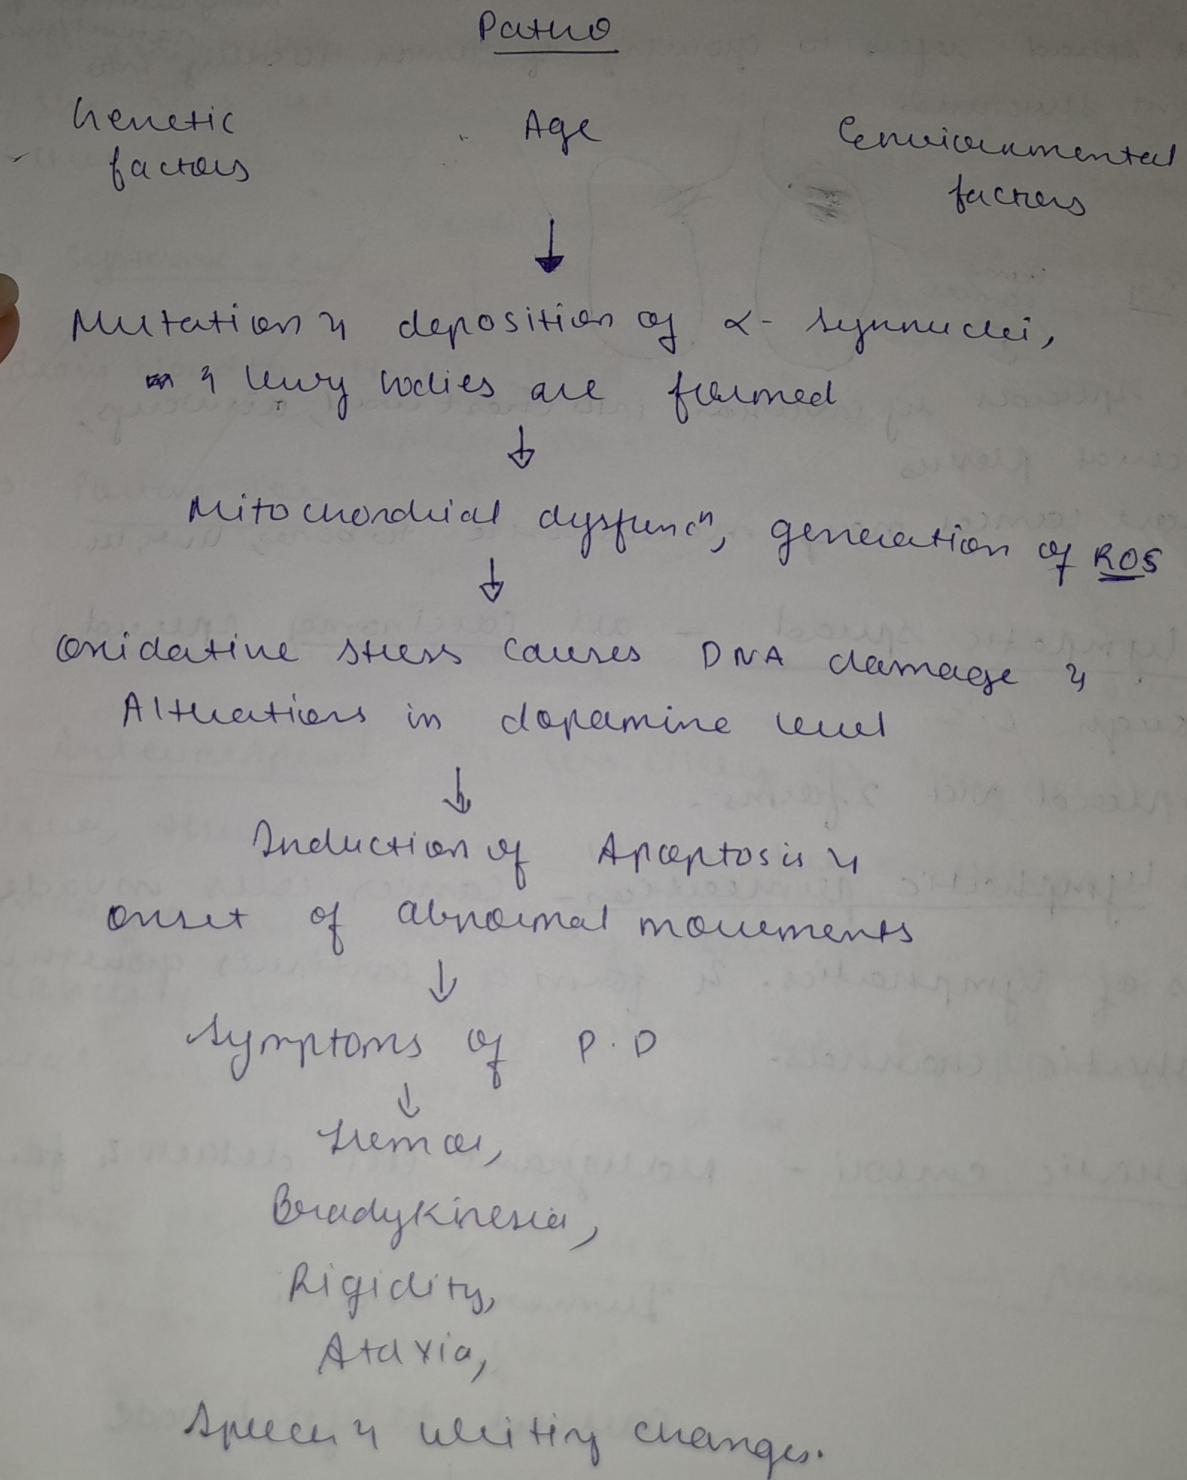 Patho
Genetic factors
Age
Environmental factors
↓
Mutation & deposition of α- synnuclei,
& lewy bodies are formed
↓
Mitochondrial dysfuncⁿ, generation of ROS
↓
Oxidative stress causes DNA damage &
Alterations in dopamine level
↓
Induction of Apoptosis &
onset of abnormal movements
↓
Symptoms of P.D
↓
Tremor,
Bradykinesia,
Rigidity,
Ataxia,
Speech & writing changes.